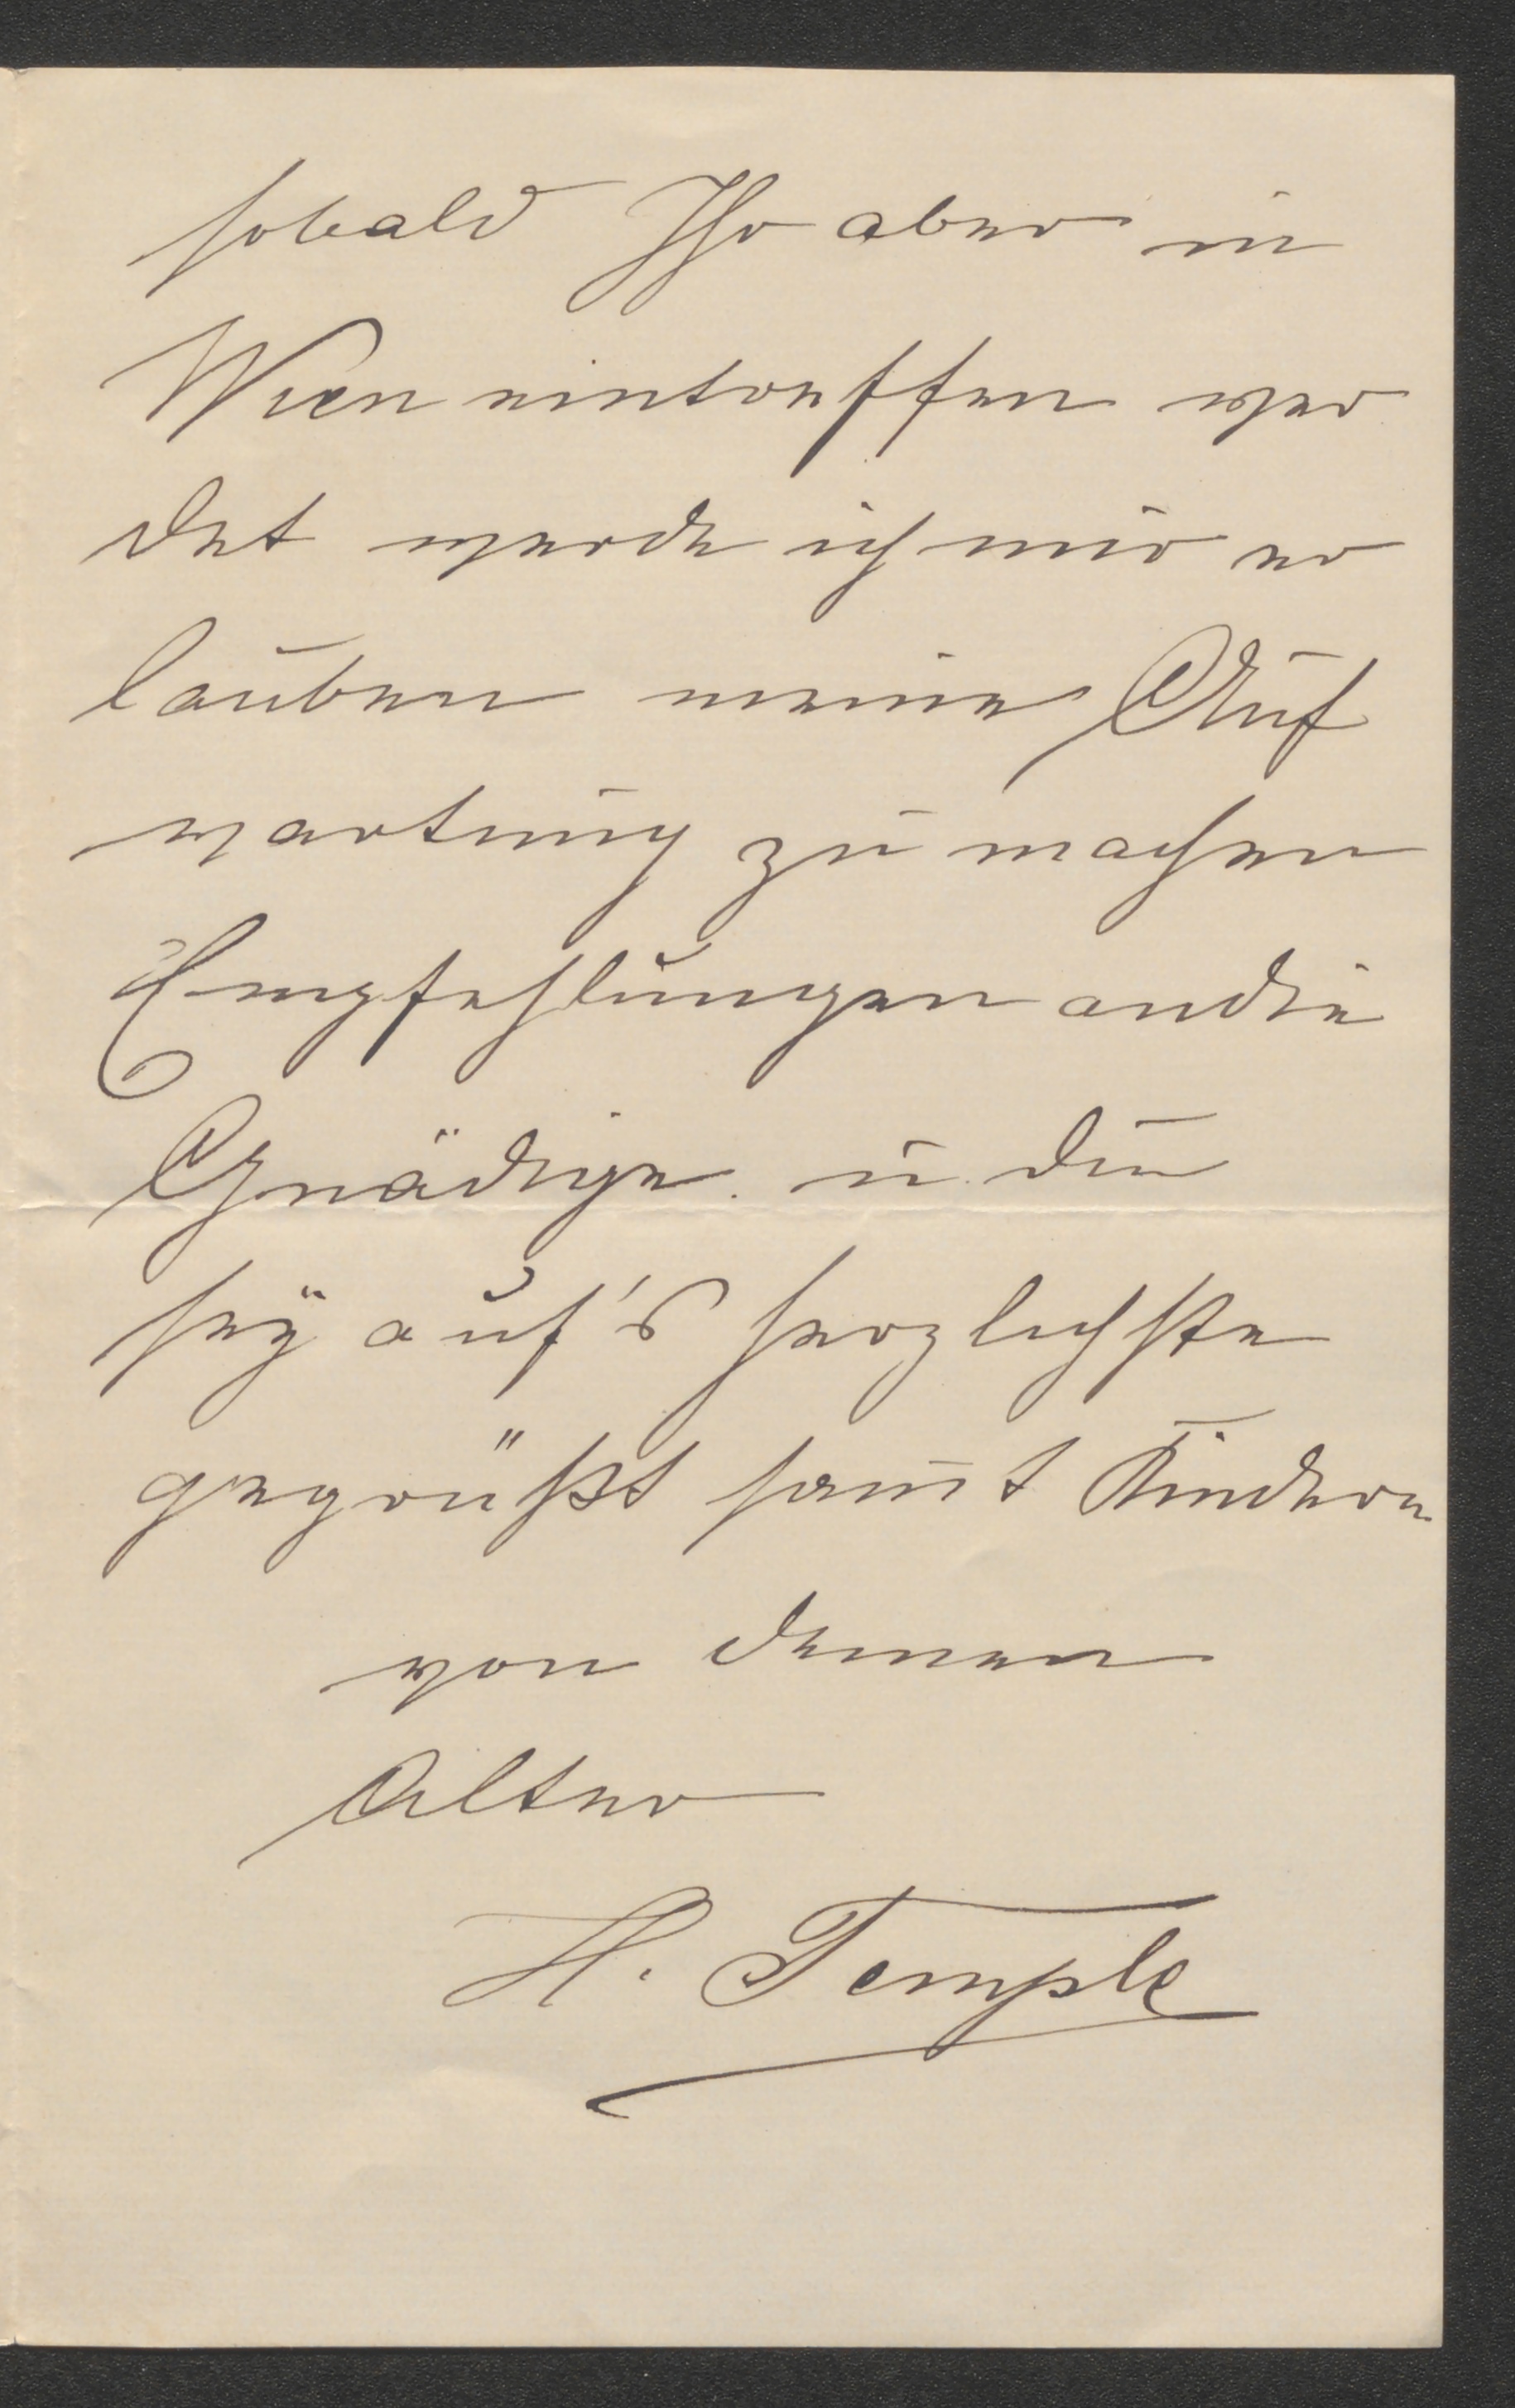 sobald Ihr aber in
Wien eintreffen wer
det werde ich mir er
lauben meine Auf
wartung zu machen
Empfehlungen an die
Gnädige. u. Du
seÿ auf's herzlichste
gegrüßt sam̅t Kindern
von Deinem
Alter
H. Temple